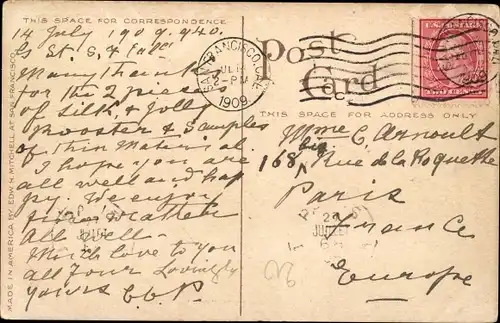 THIS SPACE FOR CORRESPONDENCE
14 July 1909. 940.
G St. S. F. Call
Many Thanks
for the 2 pieces
of silk & Jolly
Rooster & Samples
of thin Material
I hope you are
all well and hap
py. We enjoy
fine weather
All well.
Much love to you
all Four Lovingly
yours C.C.P.
MADE IN AMERICA BY EDW. H. MITCHELL, AT SAN FRANCISCO
SAN FRANCISCO, CAL.
JUL 14
PM
1909
Post
Card
U.S. POSTAGE
TWO CENTS
THIS SPACE FOR ADDRESS ONLY
Mme C. Arnoult
168 bis Rue de la Roquette
Paris
France
Europe